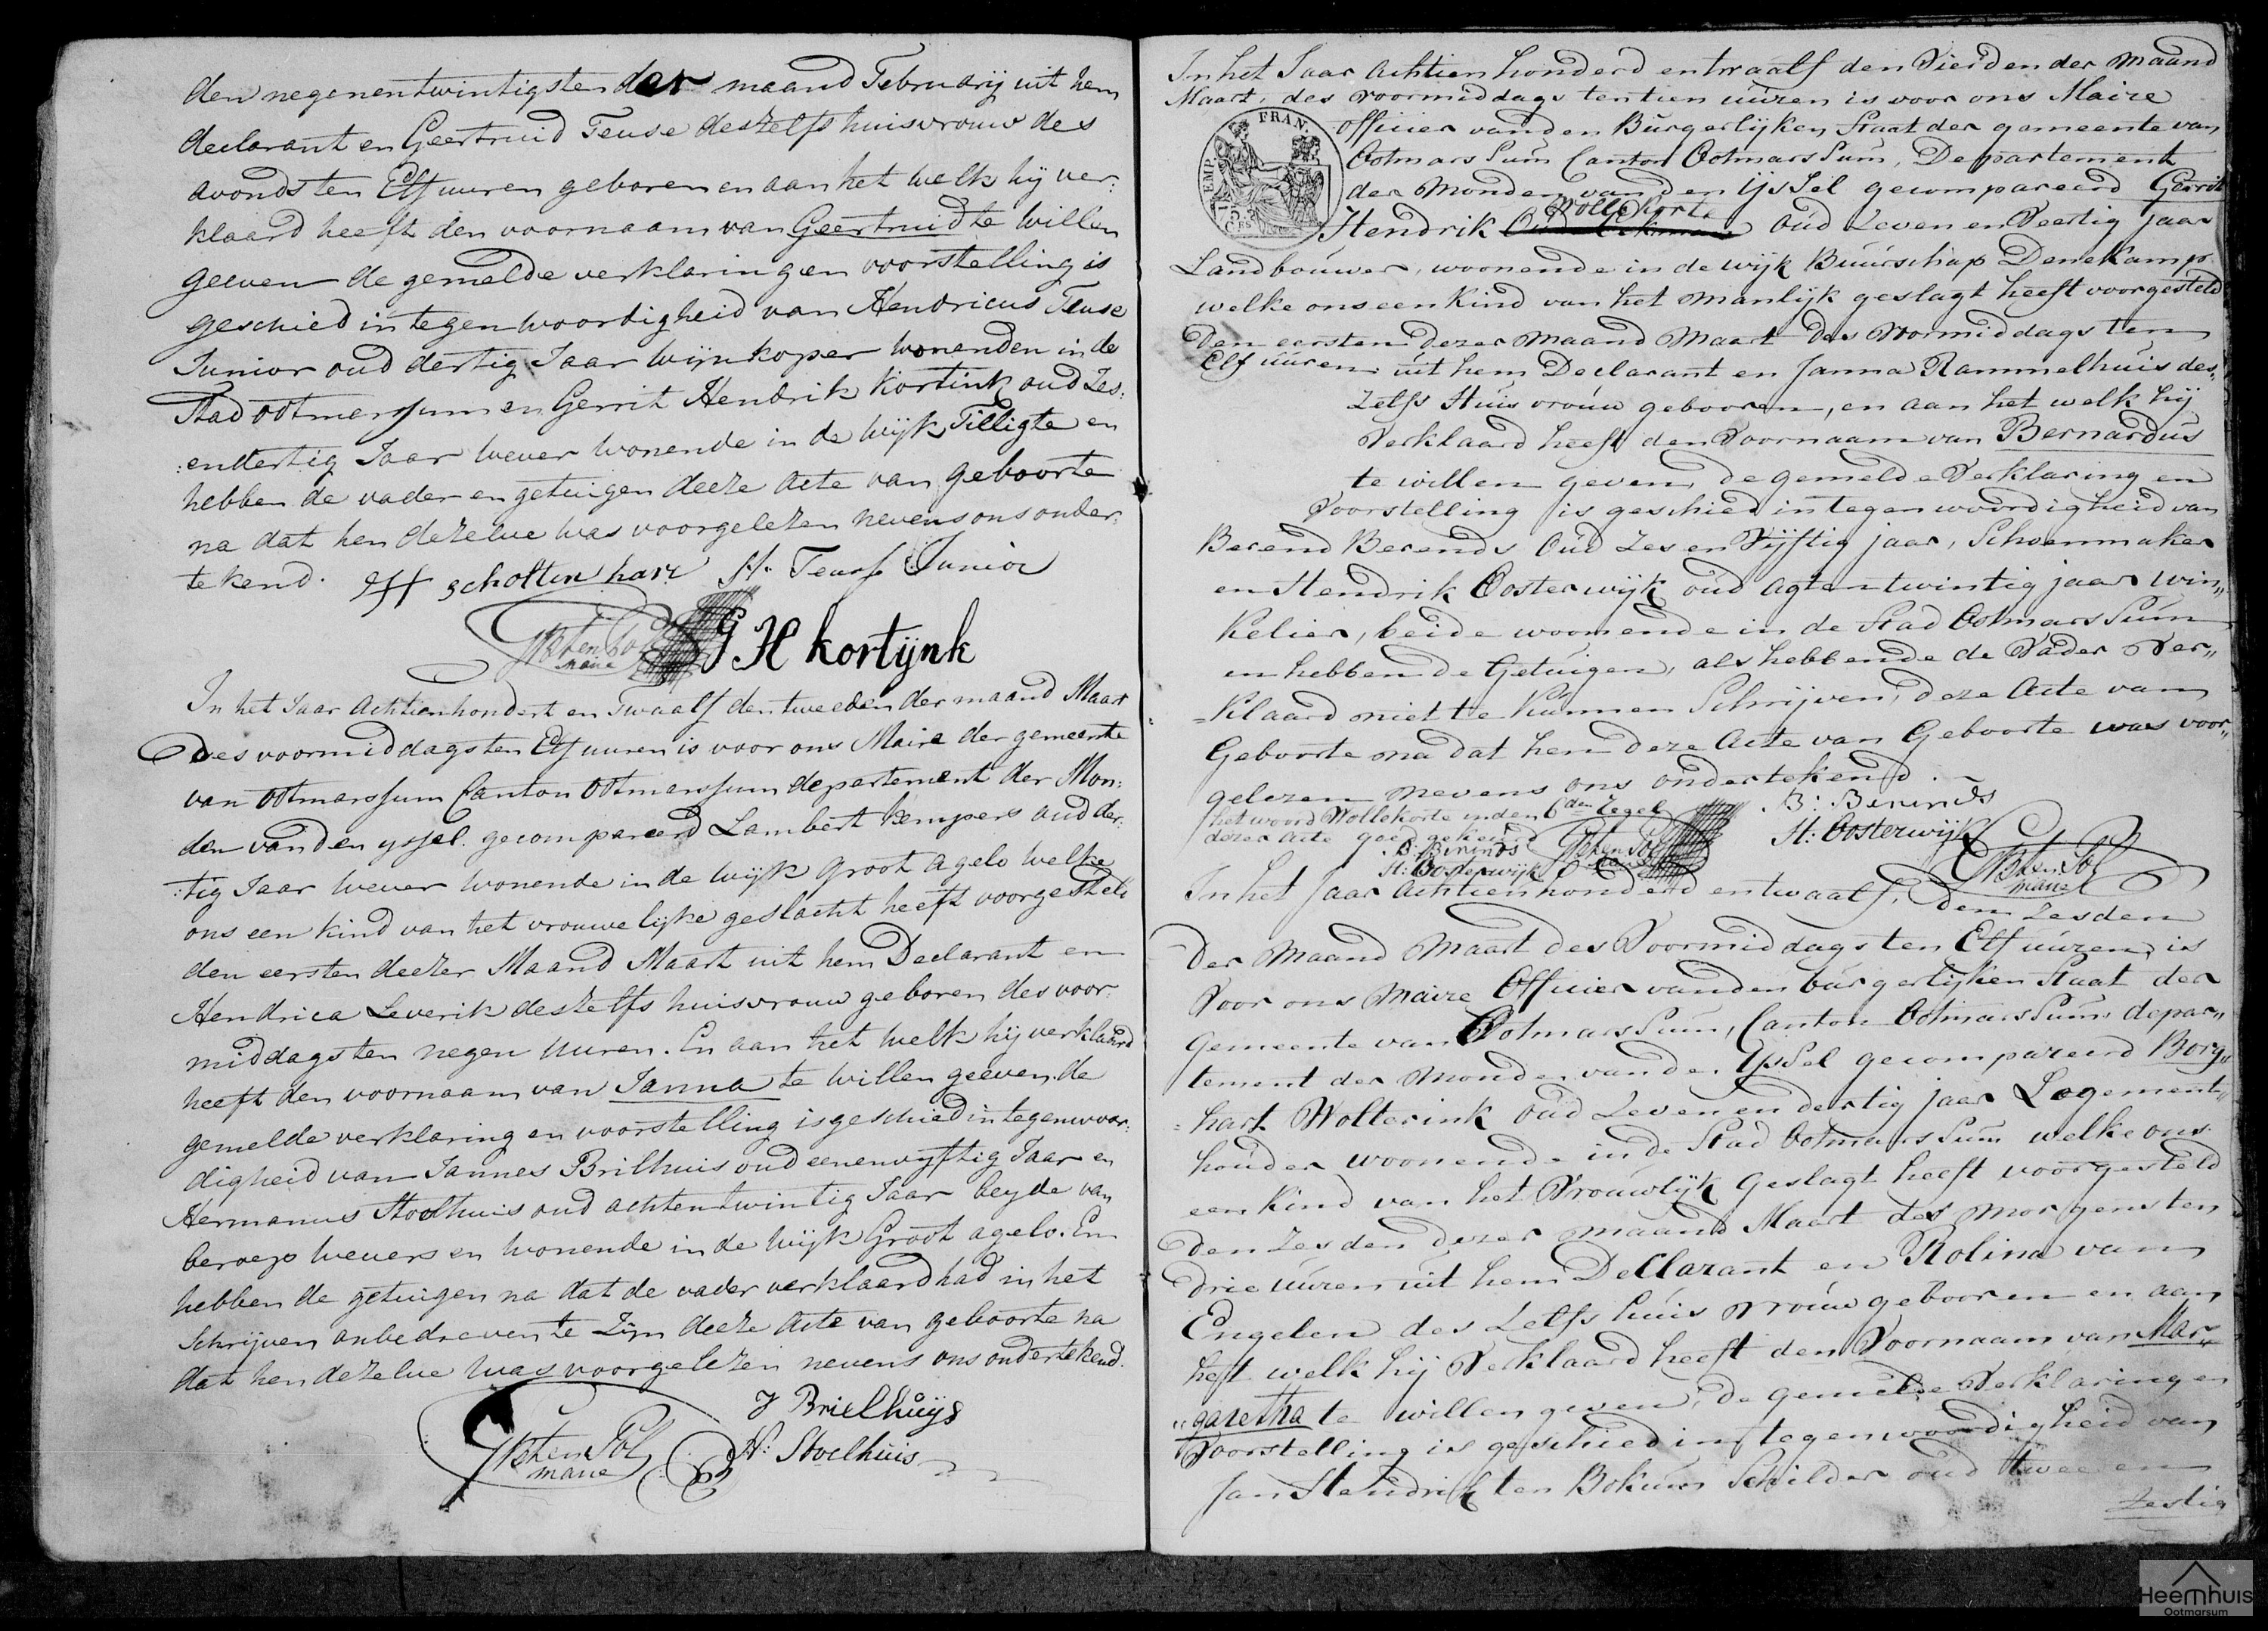 den negenentwintigsten der maand Februarij uit hem
declarant en Geertruid Teuse deszelfs huisvrouw des
avonds ten Elf uuren geboren en aan het welk hij ver:
klaard heeft den voornaam van Geertruid te willen
geeven de gemelde verklaring en voorstelling is
geschied in tegenwoordigheid van Hendricus Teuse
Junior oud dertig Jaar wijnkoper wonenden in de
Stad Ootmarssum en Gerrit Hendrik Kortink oud Zes:
:endertig Jaar wever wonende in de wijk Tilligte en
hebben de vader en getuigen deeze acte van geboorte
na dat hen dezelve was voorgelezen nevens ons onder:
tekend. scholten have H. Teuse Junior
ten Pol
maire
G H kortijnk
In het Jaar Achtienhondert en Twaalf den tweeden der maand Maart
Des voormiddags ten Elf uuren is voor ons Maire der gemeente
van Ootmarssum Canton Ootmarssum departement der Mon:
den van den yssel. gecompareerd Lambert Kempers oud der:
:tig Jaar wever wonende in de wijk groot agelo welke
ons een kind van het vrouwelijke geslacht heeft voorgesteld
den eersten deezer Maand Maart uit hem Declarant en
Hendrica Leverik deszelfs huisvrouw geboren des voor:
middags ten negen uuren. En aan het welk hij verklaard
heeft den voornaam van Janna te willen geeven, de
gemelde verklaring en voorstelling is geschied in tegenwoor:
digheid van Jannes Brilhuis oud eenenvyftig Jaar en
Hermanus Stoelhuis oud achtentwintig Jaar beyde van
beroep wevers en wonende in de wijk Groot agelo. En
hebben de getuigen na dat de vader verklaard had in het
Schrijven onbedreven te Zijn deeze Acte van geboorte na
dat hen dezelve was voorgelezen nevens ons ondertekend.
J Brielhuijs
ten Pol
maire
H: Stoelhuis
In het Jaar Achtien honderd en twaalf den Vierden der Maand
Maart, des voormiddags ten tien uúren is voor ons Maire
officier van den Búrgerlijken Staat der gemeente van
Ootmarssúm Canton Ootmarssúm, Departement
der Monden van den IJssel gecompareerd Gerrit
Wollekorte
Hendrik oúd Zeven en Veertig jaar
Landboúwer, woonende in de wijk Buúrschap Denekamp
welke ons een Kind van het manlijk geslagt heeft voorgesteld
Den eersten dezer maand Maart des Vormiddags ten
Elf uúren uit hem Declarant en Janna Rammelhuis des,,
zelfs Huis vroúw gebooren, en aan het welk hij
Verklaard heeft den Voornaam van Bernardús
te willen geven, de gemelde Verklaring en
Voorstelling is geschied in tegenwoordigheid van
Berend Berends Oúd Zes en Vijftig jaar, Schoenmaker
en Hendrik Oosterwijk oúd agtentwintig jaar win,,
kelier, beide woonende in de Stad Ootmarssúm
en hebben de Getuigen, als hebbende de Vader Ver,,
=klaard niet te kúnnen Schrijven, deze Acte van
Geboorte na dat hen deze Acte van Geboorte was voor,,
gelezen nevens ons ondertekend.
het woord Wollekorte in den 6den Regel
dezer acte goedgekeurd
B: Berends
B: Berends
H: Oosterwijk
H: Oosterwijk
ten Pol
maire
ten Pol
maire
In het Jaar Achtien honderd en twaalf, den Zesden
Der Maand Maart des Voormiddags ten Elf uúren, is
Voor ons Maire Officier van den búrgerlijken Staat der
Gemeente van Ootmarssúm, Canton Ootmarssúm, depar,,
tement der Monden van de IJssel gecompareerd Borg,,
=hart Wolterink oúd Zeven en dertig jaar Logement,,
houder woonende in de Stad Ootmarssúm welke ons
een Kind van het Vroúwlijk Geslagt heeft voorgesteld
Den Zesden dezer maand Maart des morgens ten
drie uúren uit hem Declarant en Rolina van
Engelen des Zelfs huis vroúw gebooren en aan
het welk hij Verklaard heeft den Voornaam van Mar,,
,,garetha te willen geven, de gemelde Verklaring en
Voorstelling is geschied in tegenwoordigheid van
Jan Hendrik ten Bokúm Schilder oúd twee en
Zestig
EMP. FRAN.
75
CES
Heemhuis
Ootmarsum